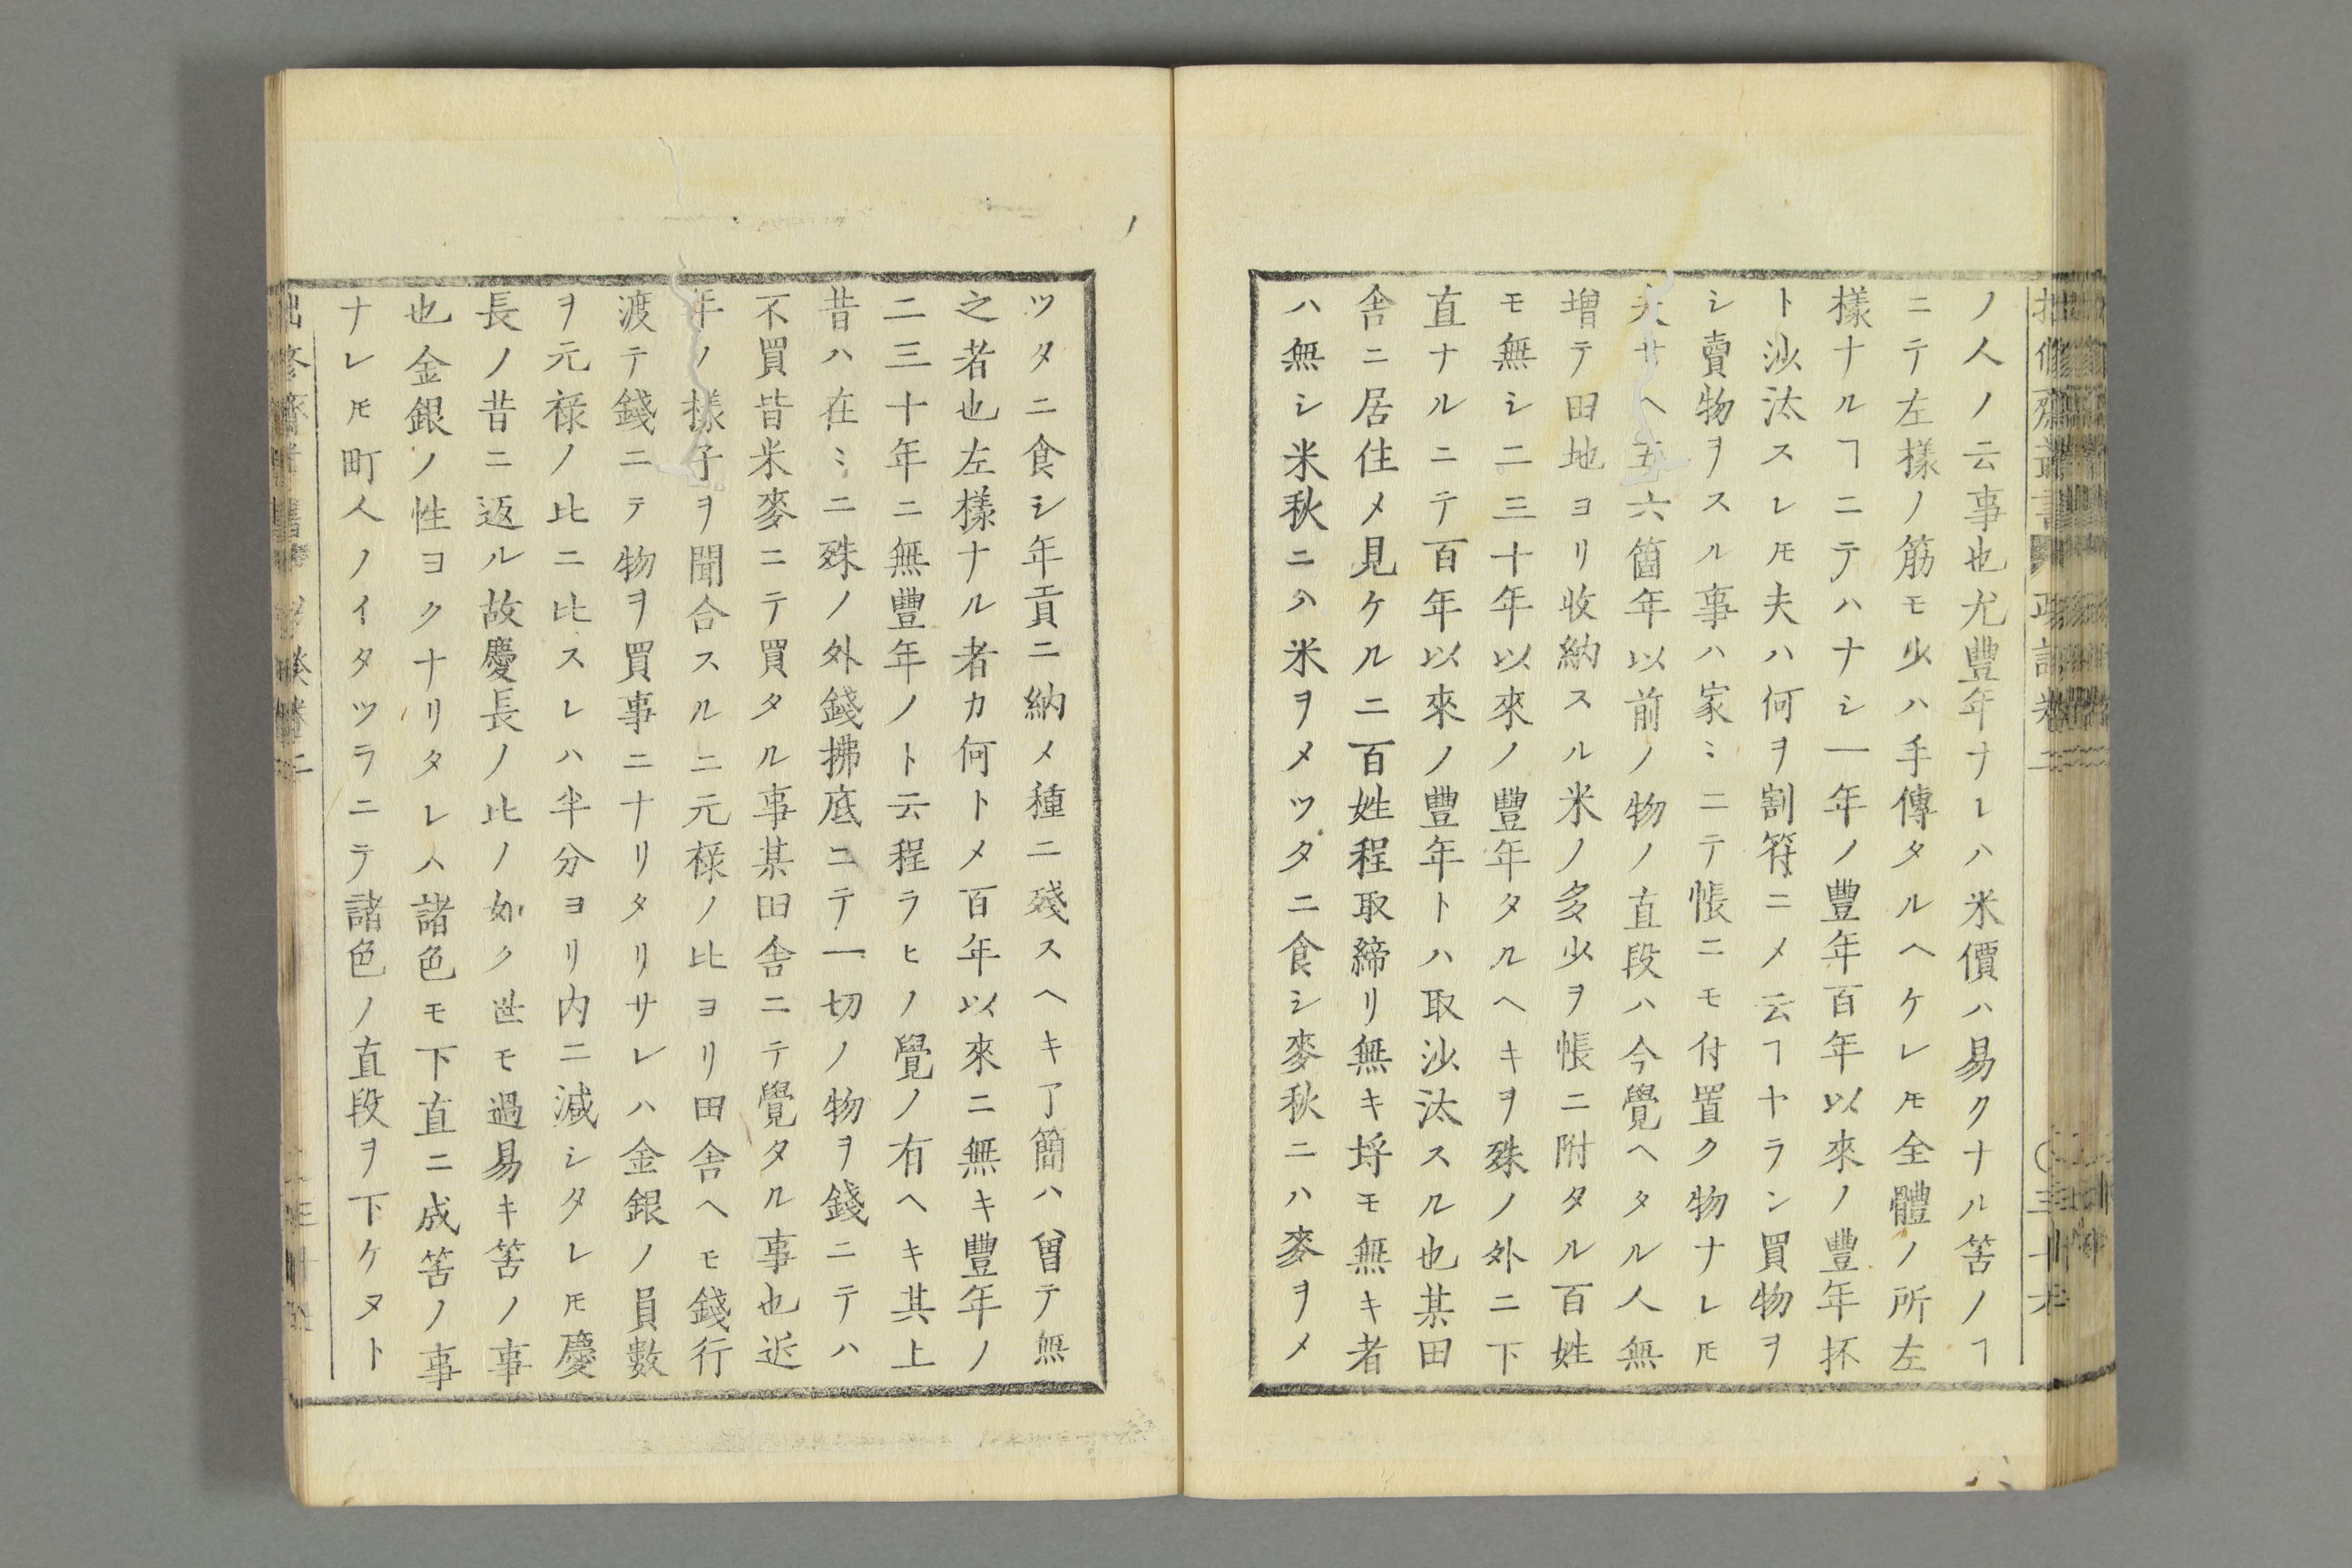 ノ人ノ云事也尤豐年ナレハ米價ハ易クナル筈ノヿ
ニテ左樣ノ筋モ少ハ手傳タルヘケレ𪜈全體ノ所左
樣ナルヿニテハナシ一年ノ豐年百年以來ノ豐年抔
ト沙汰スレ𪜈夫ハ何ヲ割符ニメ云ヿヤラン買物ヲ
シ賣物ヲスル事ハ家〻ニテ帳ニモ付置ク物ナレ𪜈
夫サヘ五六箇年以前ノ物ノ直段ハ今覺ヘタル人無
増テ田地ヨリ收納スル米ノ多少ヲ帳ニ附タル百姓
モ無シ二三十年以來ノ豐年タルヘキヲ殊ノ外ニ下
直ナルニテ百年以來ノ豐年トハ取沙汰スル也某田
舎ニ居住メ見ケルニ百姓程取締リ無キ埒モ無キ者
ハ無シ米秋ニハ米ヲメツタニ食シ麥秋ニハ麥ヲメ
ツタニ食シ年貢ニ納メ種ニ殘スヘキ了簡ハ曾テ無
之者也左樣ナル者カ何トメ百年以來ニ無キ豐年ノ
二三十年ニ無豐年ノト云程ラヒノ覺ノ有ヘキ其上
昔ハ在〻ニ殊ノ外錢拂底ニテ一切ノ物ヲ錢ニテハ
不買皆米麥ニテ買タル事某田舎ニテ覺タル事也近
年ノ樣子ヲ聞合スルニ元祿ノ比ヨリ田舎ヘモ錢行
渡テ錢ニテ物ヲ買事ニナリタリサレハ金銀ノ員數
ヲ元祿ノ比ニ比スレハ半分ヨリ内ニ減シタレ𪜈慶
長ノ昔ニ返ル故慶長ノ比ノ如ク世モ過易キ筈ノ事
也金銀ノ性ヨクナリタレハ諸色モ下直ニ成筈ノ事
ナレ𪜈町人ノイタツラニテ諸色ノ直段ヲ下ケヌト